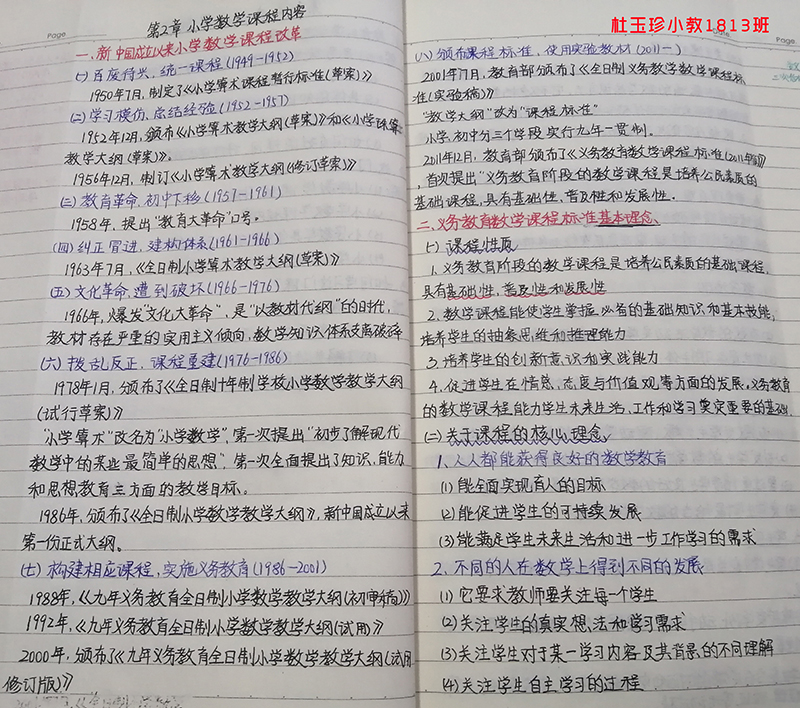 杜玉珍小教1813班
Page
第2章 小学数学课程内容
一、新中国成立以来小学数学课程改革
(一)百废待兴,统一课程(1949-1952)
1950年7月,制定了《小学算术课程暂行标准(草案)》
(二)学习模仿、总结经验(1952-1957)
1952年12月,颁布《小学算术教学大纲(草案)》和《小学珠算
教学大纲(草案)》。
1956年12月,制订《小学算术教学大纲(修订草案)》
(三)教育革命,初中下移(1957-1961)
1958年,提出"教育大革命"口号。
(四)纠正冒进,建构体系(1961-1966)
1963年7月,《全日制小学算术教学大纲(草案)》
(五)文化革命,遭到破坏(1966-1976)
1966年,爆发"文化大革命",是"以教材代纲"的时代,
教材存在严重的实用主义倾向,数学知识体系支离破碎
(六)拨乱反正,课程重建(1976-1986)
1978年1月,颁布了《全日制十年制学校小学数学教学大纲
(试行草案)》
"小学算术"改名为"小学数学",第一次提出"初步了解现代
数学中的某些最简单的思想",第一次全面提出了知识,能力
和思想教育三方面的教学目标。
1986年,颁布了《全日制小学数学教学大纲》,新中国成立以来
第一份正式大纲。
(七)构建相应课程,实施义务教育(1986-2001)
1988年,《九年义务教育全日制小学数学教学大纲(初审稿)》
1992年,《九年义务教育全日制小学数学教学大纲(试用)》
2000年,颁布了《九年义务教育全日制小学数学教学大纲(试用
修订版)》
Page
(八)颁布课程标准,使用实验教材(2011-)
2001年7月,教育部颁布了《全日制义务教学数学课程标
准(实验稿)》
"教学大纲"改为"课程标准"
小学,初中分三个学段,实行九年一贯制.
2011年12月,教育部颁布了《义务教育数学课程标准(2011年版)》
,首次提出"义务教育阶段的数学课程是培养公民素质的
基础课程,具有基础性、普及性和发展性。
二、义务教育数学课程标准基本理念、
(一)课程性质
1、义务教育阶段的数学课程是培养公民素质的基础课程,
具有基础性,普及性和发展性
2、数学课程能使学生掌握必备的基础知识和基本技能,
培养学生的抽象思维和推理能力
3.培养学生的创新意识和实践能力
4.促进学生在情感,态度与价值观等方面的发展,义务教育
的数学课程能为学生未来生活,工作和学习奠定重要的基础.
(二)关于课程的核心理念
1、人人都能获得良好的数学教育
(1)能全面实现育人的目标
(2)能促进学生的可持续发展
(3)能满足学生未来生活和进一步工作学习的需求
2、不同的人在数学上得到不同的发展
(1)它要求教师要关注每一个学生
(2)关注学生的真实想法和学习需求
(3)关注学生对于某一学习内容及其背景的不同理解
(4)关注学生自主学习的过程